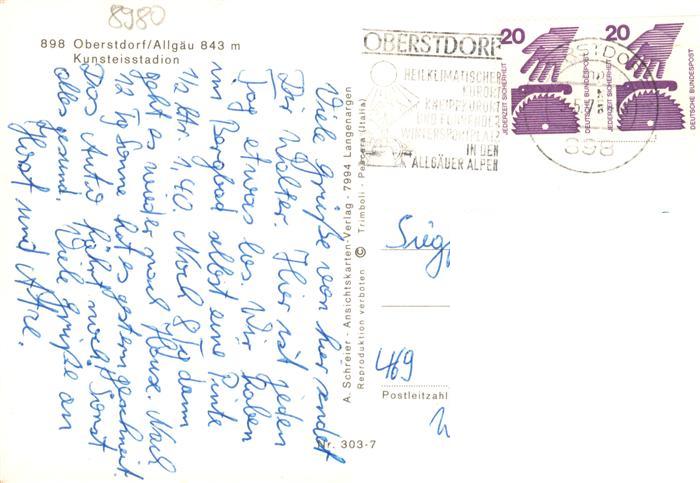 8980
898 Oberstdorf/Allgäu 843 m
Kunsteisstadion
Viele Grüße von hier sendet
Dir Walter. Hier ist jeden
Tag etwas los. Wir haben
im Bergbad selbst eine Pinte
1/2 Ltr. 1,40. Noch 8 Tg dann
geht es wieder nach Hause. Nach
12 Tg Sonne hat es gestern geschneit.
Das Auto fährt noch. Sonst
alles gesund. Viele Grüße an
Horst und
A. Schreier - Ansichtskarten-Verlag - 7994 Langenargen
Reproduktion verboten © Trimboli - Pescara (Italia)
Nr. 303-7
OBERSTDORF
HEILKLIMATISCHER
KURORT
KNEIPPKURORT
WINTERSPORTPLATZ
IN DEN
ALLGÄUER ALPEN
898
20
JEDERZEIT SICHERHEIT
DEUTSCHE BUNDESPOST
20
JEDERZEIT SICHERHEIT
DEUTSCHE BUNDESPOST
Sieg
469
Postleitzahl